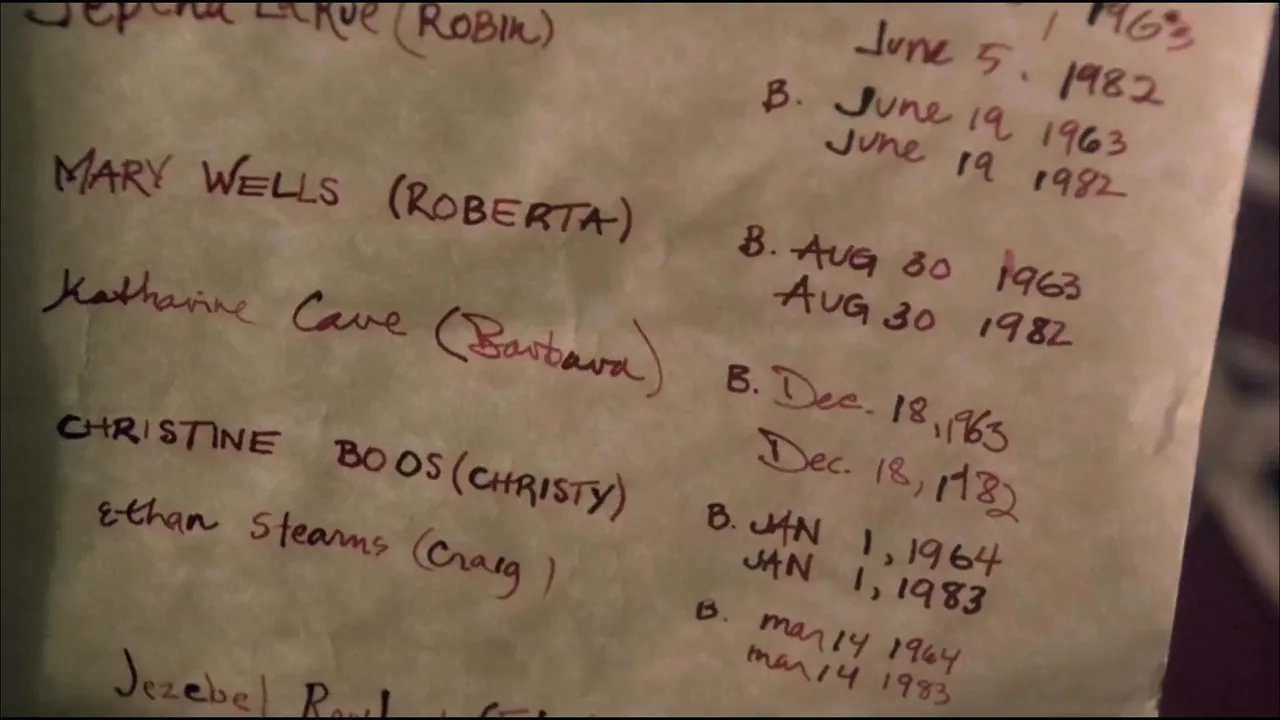 LaRue (ROBIN)
1963
June 5, 1982
B. June 19 1963
June 19 1982
MARY WELLS (ROBERTA)
B. AUG 30 1963
AUG 30 1982
Katharine Cave (Barbara)
B. Dec. 18, 1963
Dec. 18, 1982
CHRISTINE BOOS (CHRISTY)
B. JAN 1, 1964
JAN 1, 1983
Ethan Stearns (Craig)
B. mar 14 1964
mar 14 1983
Jezebel